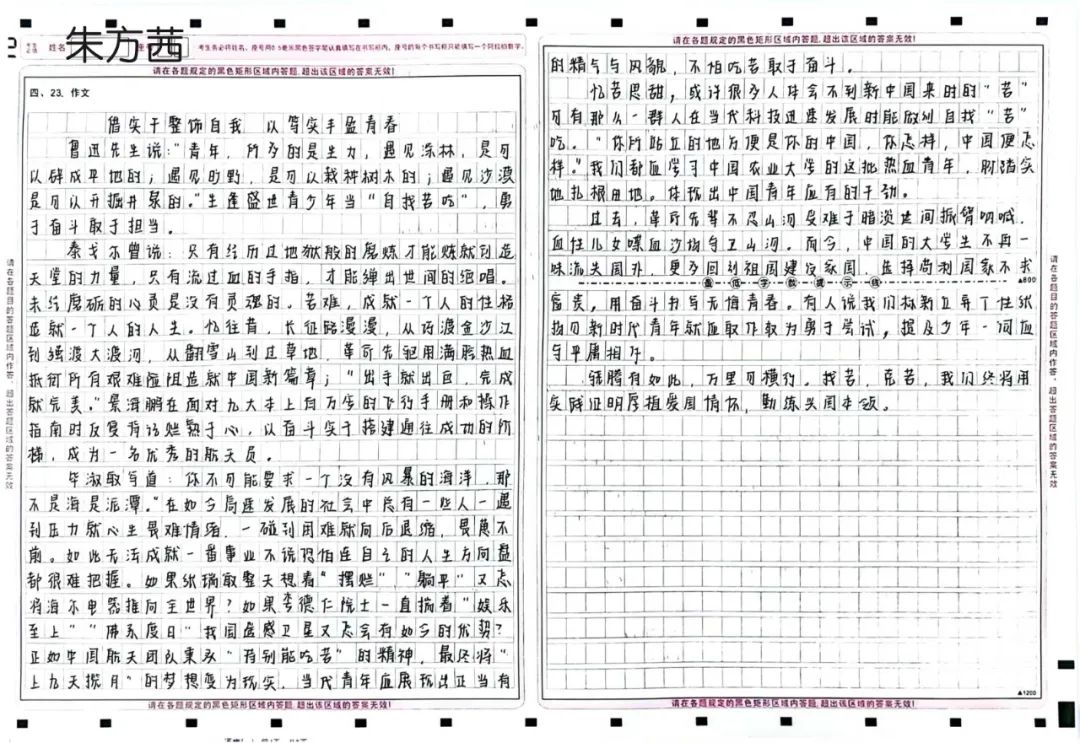 朱方茜
姓名
考生务必将姓名、座号用0.5毫米黑色签字笔认真填写在书写框内，座号的每个书写框只能填写一个阿拉伯数字。
请在各题规定的黑色矩形区域内答题，超出该区域的答案无效！
四、23. 作文
借实干整饰自我 以笃实丰盈青春
鲁迅先生说：“青年，所多的是生力，遇见深林，是可
以辟成平地的；遇见旷野，是可以栽种树木的；遇见沙漠
是可以开掘井泉的。”生逢盛世青少年当“自找苦吃”，勇
于奋斗敢于担当。
泰戈尔曾说：只有经历过地狱般的磨炼才能炼就创造
天堂的力量，只有流过血的手指，才能弹出世间的绝唱。
未经磨砺的心灵是没有灵魂的。苦难，成就一个人的性格
造就一个人的人生。忆往昔，长征路漫漫，从巧渡金沙江
到强渡大渡河，从翻雪山到过草地，革命先驱用满腔热血
抵御所有艰难险阻造就中国新篇章；“出手就出色，完成
就完美。”景海鹏在面对九大本上百万字的飞行手册和操作
指南时反复背诵烂熟于心，以奋斗实干搭建通往成功的桥
横，成为一名优秀的航天员。
毕淑敏写道：你不可能要求一个没有风暴的海洋，那
不是海是泥潭。“在如今高速发展的社会中总有一些人一遇
到压力就心生畏难情绪，一碰到困难就向后退缩，畏惫不
前。如此无法成就一番事业不说恐怕连自己的人生方向盘
都很难把握。如果张瑞敏整天想着“摆烂”“躺平”又怎
将海尔电器推向全世界？如果李德仁院士一直揣着“娱乐
至上”“佛系度日”我国遥感卫星又怎会有如今的优势？
正如中国航天团队秉承“特别能吃苦”的精神，最终将“
上九天揽月”的梦想变为现实，当代青年应展现出正当有
请在各题规定的黑色矩形区域内答题，超出该区域的答案无效！
请在各题目的答题区域内作答，超出答题区域的答案无效
请在各题规定的黑色矩形区域内答题，超出该区域的答案无效！
的精气与风貌，不怕吃苦敢于奋斗。
忆苦思甜，或许很多人体会不到新中国来时的“苦”
可有那么一群人在当代科技迅速发展时能做到自找“苦”
吃。“你所站立的地方便是你的中国，你怎样，中国便怎
样。”我们都应学习中国农业大学的这批热血青年，脚踏实
地扎根田地。体现出中国青年应有的干劲。
过去，革命先辈不忍山河受难于暗淡世间振臂呐喊，
血性儿女喋血沙场守卫山河。而今，中国的大学生不再一
味流失国外，更多回到祖国建设家园，选择尚利国家不求
最低字数提示线
▲800
富贵，用奋斗书写无悔青春。有人说我们标新立异个性张
扬可新时代青年就应敢作敢为勇于尝试，提及少年一词应
与平庸相斥。
筑腾有如此，万里可横行。找苦，克苦，我们终将用
实践证明厚植爱国情怀，勤练兴国本领。
▲1200
请在各题规定的黑色矩形区域内答题，超出该区域的答案无效！
请在各题目的答题区域内作答，超出答题区域的答案无效